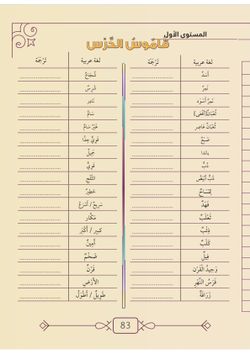 المستوى الأول
قاموس الدرس
لغة عربية
ترجمة
أسد
نمر
نمر أسود
ثعبان (أفعى)
ثعبان عاصر
ضبع
باندا
دب
دب أبيض
تمساح
فهد
ثعلب
ذئب
كلب
فيل
وحيد القرن
فرس النهر
زرافة
لغة عربية
ترجمة
شجاع
شرس
نادر
سام
غير سام
قوي جدا
جميل
قوي
الثلج
خطير
سريع / أسرع
مكار
كبير / أكبر
أمين
ضخم
قرن
الأرض
طويل / أطول
83